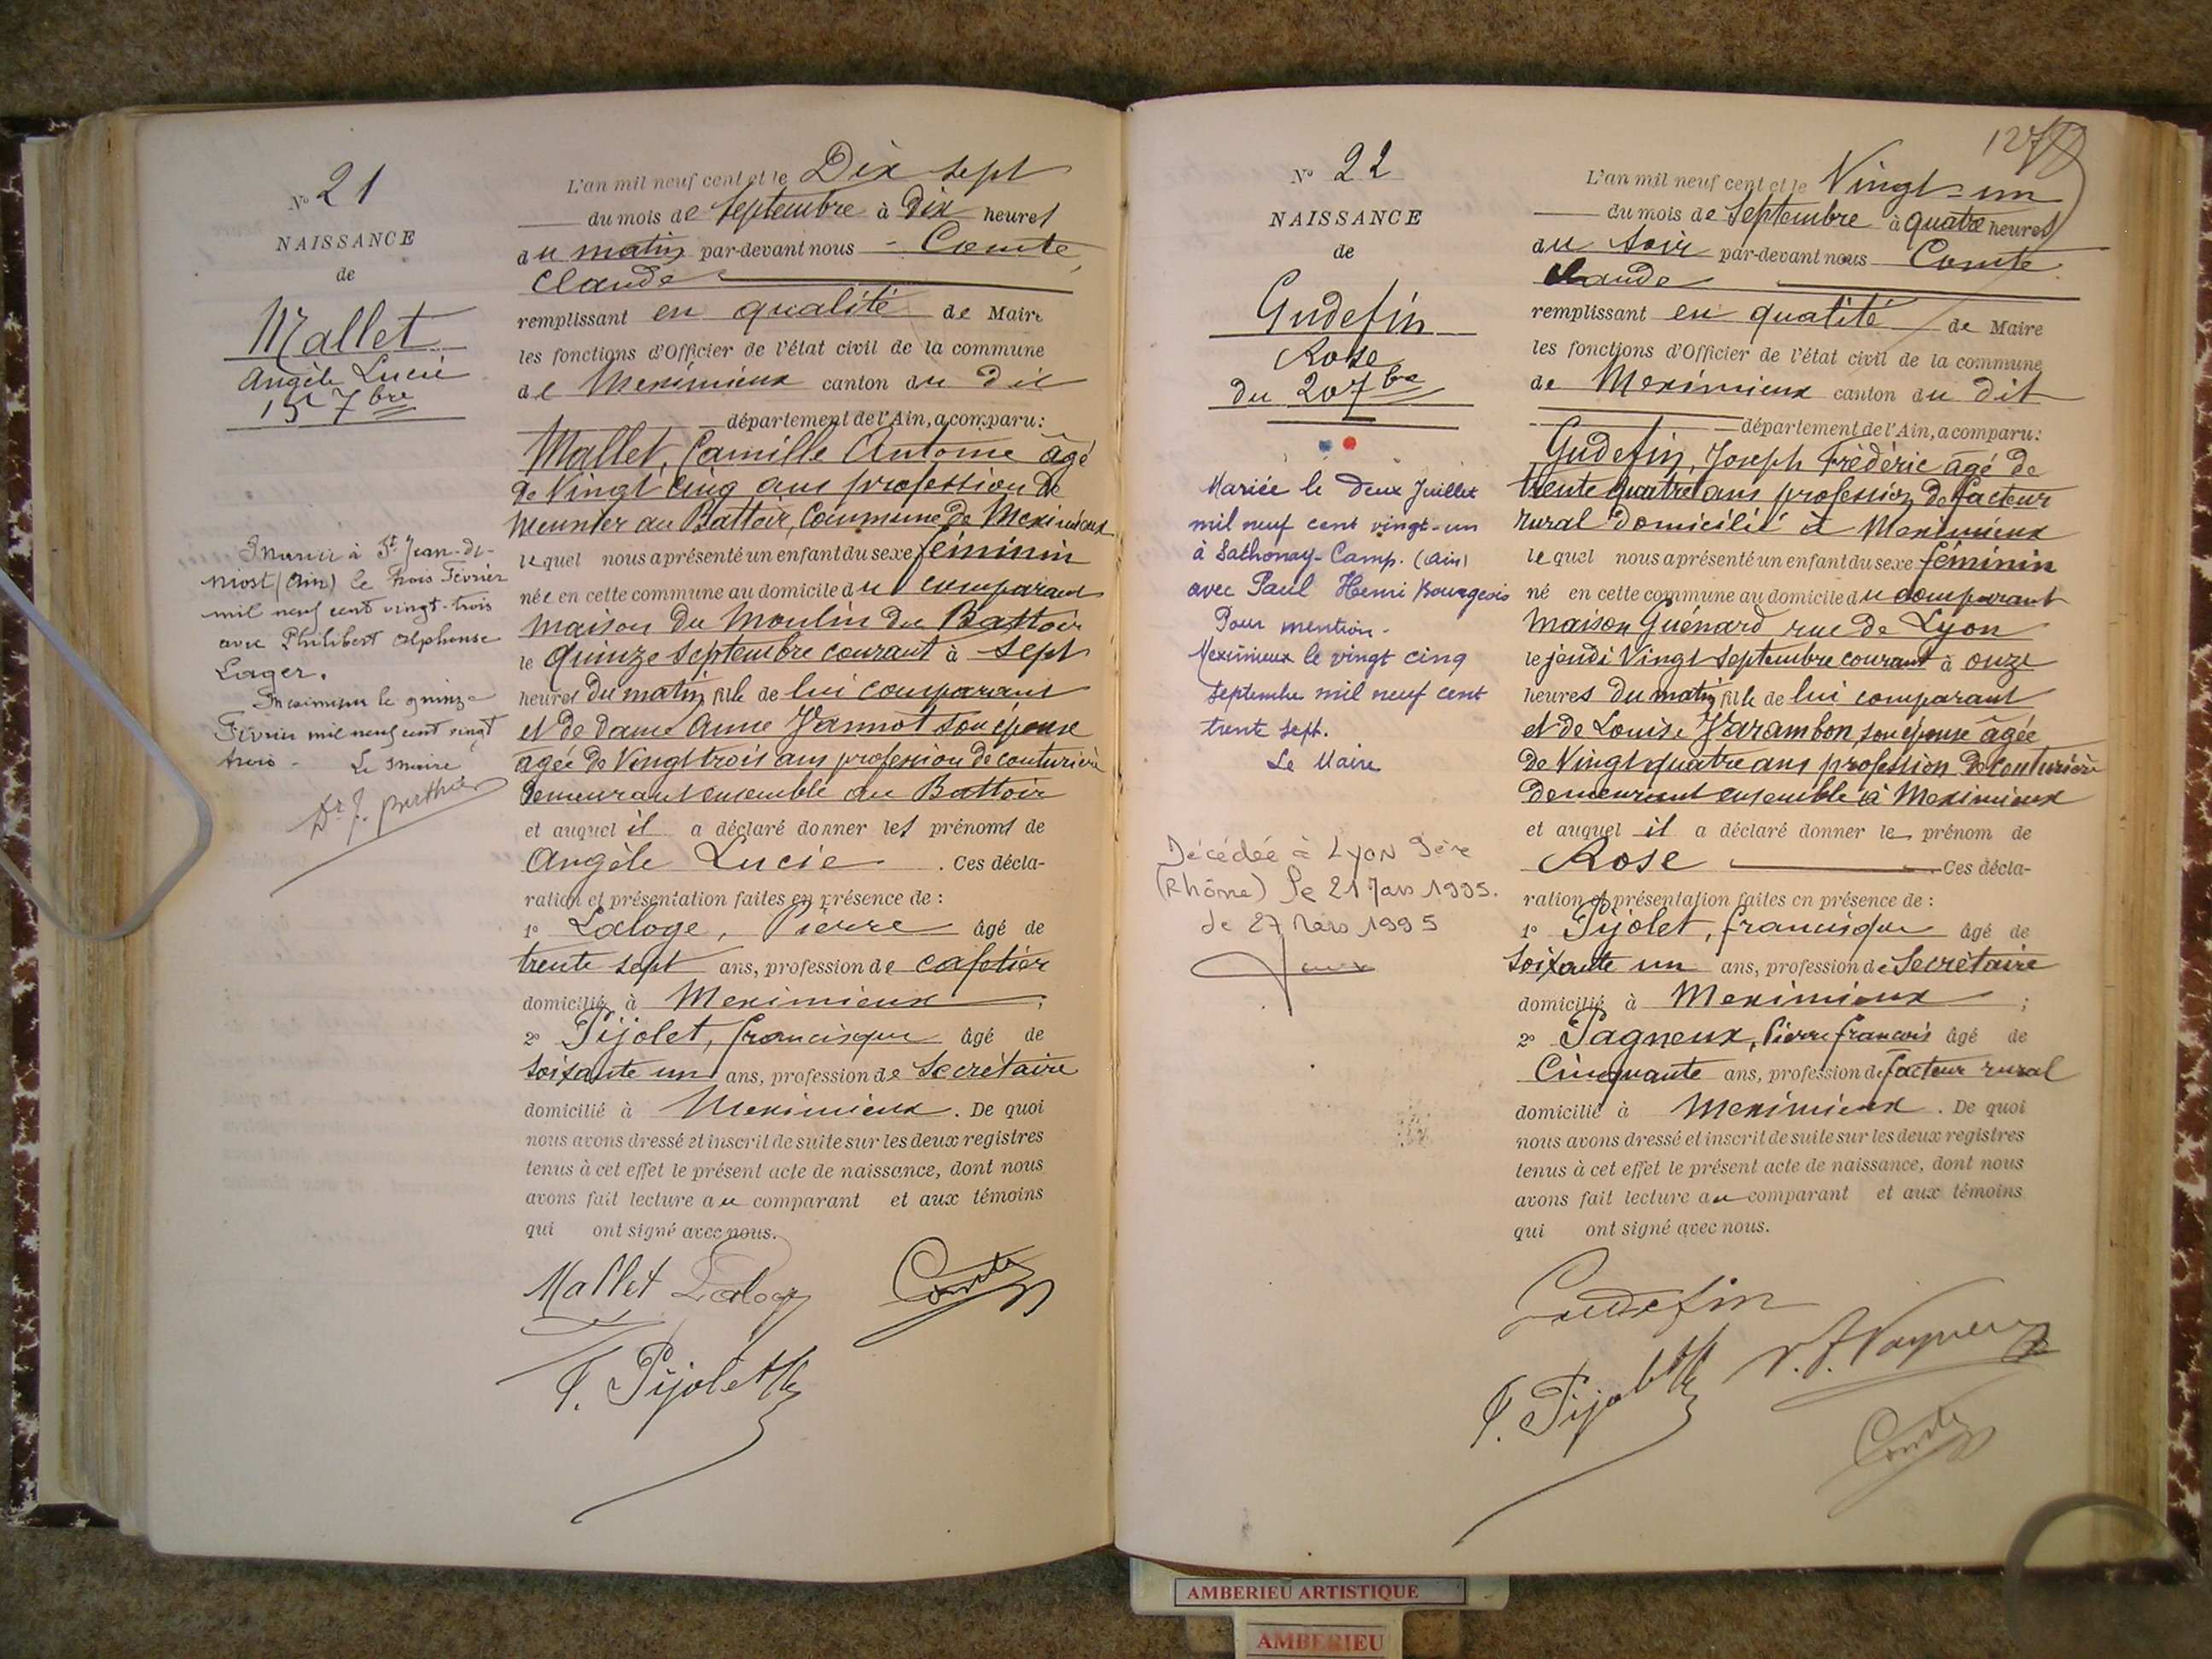 No 21
NAISSANCE
de
Mallet
Angèle Lucie
15 7bre
Marié à St Jean-de-
Niost (Ain) le trois Février
mil neuf cent vingt-trois
avec Philibert Alphonse
Lager.
Meximieux le quinze
Février mil neuf cent vingt
trois - Le Maire
Dr J. Berthier
L'an mil neuf cent et le Dix sept
du mois de Septembre à Dix heures
du matin par-devant nous - Comte
Claude
remplissant en qualité de Maire
les fonctions d'Officier de l'état civil de la commune
de Meximieux canton du dit
département de l'Ain, a comparu:
Mallet, Camille Antome âgé
de Vingt cinq ans profession de
Meunier au Battoir, Commune de Meximieux
lequel nous a présenté un enfant du sexe féminin
née en cette commune au domicile du comparant
maison du Moulin du Battoir
le quinze Septembre courant à sept
heures du matin fille de lui comparant
et de dame Anne Vannot son épouse
âgée de Vingt trois ans profession de couturière
demeurant ensemble au Battoir
et auquel il a déclaré donner les prénoms de
Angèle Lucie . Ces décla-
ration et présentation faites en présence de :
1o Laloge, Pierre âgé de
trente sept ans, profession de cafetier
domicilié à Meximieux ;
2o Pijolet, francisque âgé de
soixante un ans, profession de Secrétaire
domicilié à Meximieux . De quoi
nous avons dressé et inscrit de suite sur les deux registres
tenus à cet effet le présent acte de naissance, dont nous
avons fait lecture au comparant et aux témoins
qui ont signé avec nous.
Mallet Laloge Comte
F. Pijolet
127
No 22
NAISSANCE
de
Gudefin
Rose
du 20 7bre
Mariée le deux Juillet
mil neuf cent vingt-un
à Sathonay-Camp. (Ain)
avec Paul Henri Bourgeois
Pour mention -
Meximieux le vingt cinq
septembre mil neuf cent
trente sept.
Le Maire
Décédée à Lyon
(Rhône) le 21 Mars 1995.
Le 27 Mars 1995
L'an mil neuf cent et le Vingt-un
du mois de Septembre à quatre heures
du soir par-devant nous Comte
Claude
remplissant en qualité de Maire
les fonctions d'Officier de l'état civil de la commune
de Meximieux canton du dit
département de l'Ain, a comparu:
Gudefin, Joseph Frédéric âgé de
trente quatre ans profession de facteur
rural domicilié à Meximieux
lequel nous a présenté un enfant du sexe féminin
né en cette commune au domicile du comparant
maison Guénard rue de Lyon
le jeudi Vingt Septembre courant à onze
heures du matin fille de lui comparant
et de Louise Varambon, son épouse âgée
de Vingt quatre ans profession de couturière
demeurant ensemble à Meximieux
et auquel il a déclaré donner le prénom de
Rose Ces décla-
ration et présentation faites en présence de :
1o Pijolet, francisque âgé de
soixante un ans, profession de Secrétaire
domicilié à Meximieux ;
2o Pagneux, Pierre françois âgé de
Cinquante ans, profession de facteur rural
domicilié à Meximieux . De quoi
nous avons dressé et inscrit de suite sur les deux registres
tenus à cet effet le présent acte de naissance, dont nous
avons fait lecture au comparant et aux témoins
qui ont signé avec nous.
Gudefin
F. Pijolet
Comte
AMBERIEU ARTISTIQUE
AMBERIEU